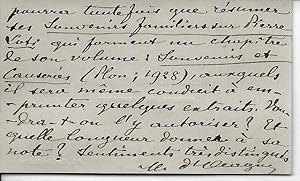 pourra toutefois que résumer
ses Souvenirs familiers sur Pierre
Loti qui forment un chapitre
de son volume : Souvenirs et
Causeries (Plon ; 1928), auxquels
il sera même conduit à em-
prunter quelques extraits. Vou-
dra-t-on l'y autoriser ? Et
quelle longueur donner à sa
note ? Sentiments très distingués
M. d'